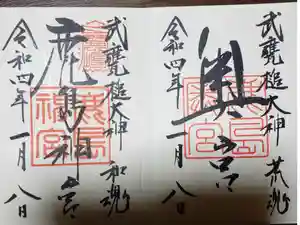 武甕槌大神 荒魂
奥宮
令和四年一月八日
武甕槌大神 和魂
鹿島神宮
令和四年一月八日
鹿島
神宮